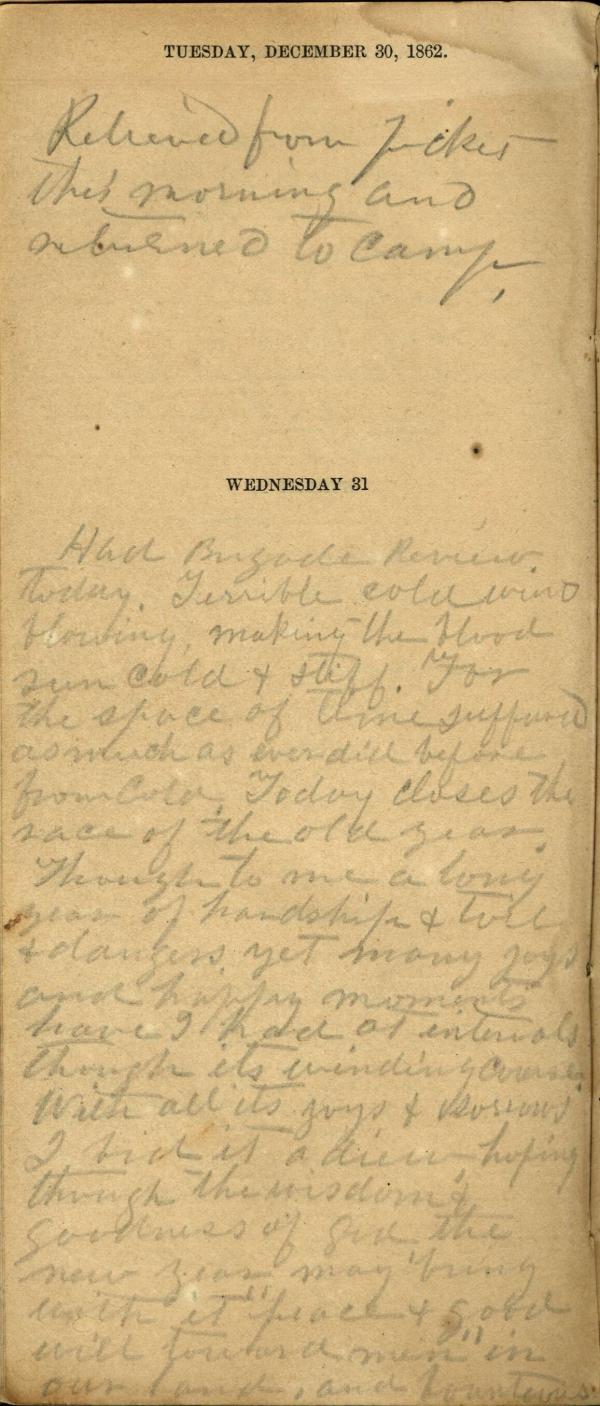 TUESDAY, DECEMBER 30, 1862.
Relieved from picket
this morning and
returned to camp,
WEDNESDAY 31
Had Brigade Review
today. Terrible cold wind
blowing, making the blood
run cold & stiff. For
the space of time suffered
as much as ever did before
from cold. Today closes the
race of the old year.
Though to me a long
year of hardship & toil
& dangers yet many joys
and happy moments
have I had at intervals
though its winding course.
With all its joys & sorrows
I bid it adieu hoping
though the wisdom &
goodness of God the
new year may bring
with it "peace & good
will toward men" in
our land, and bounteous